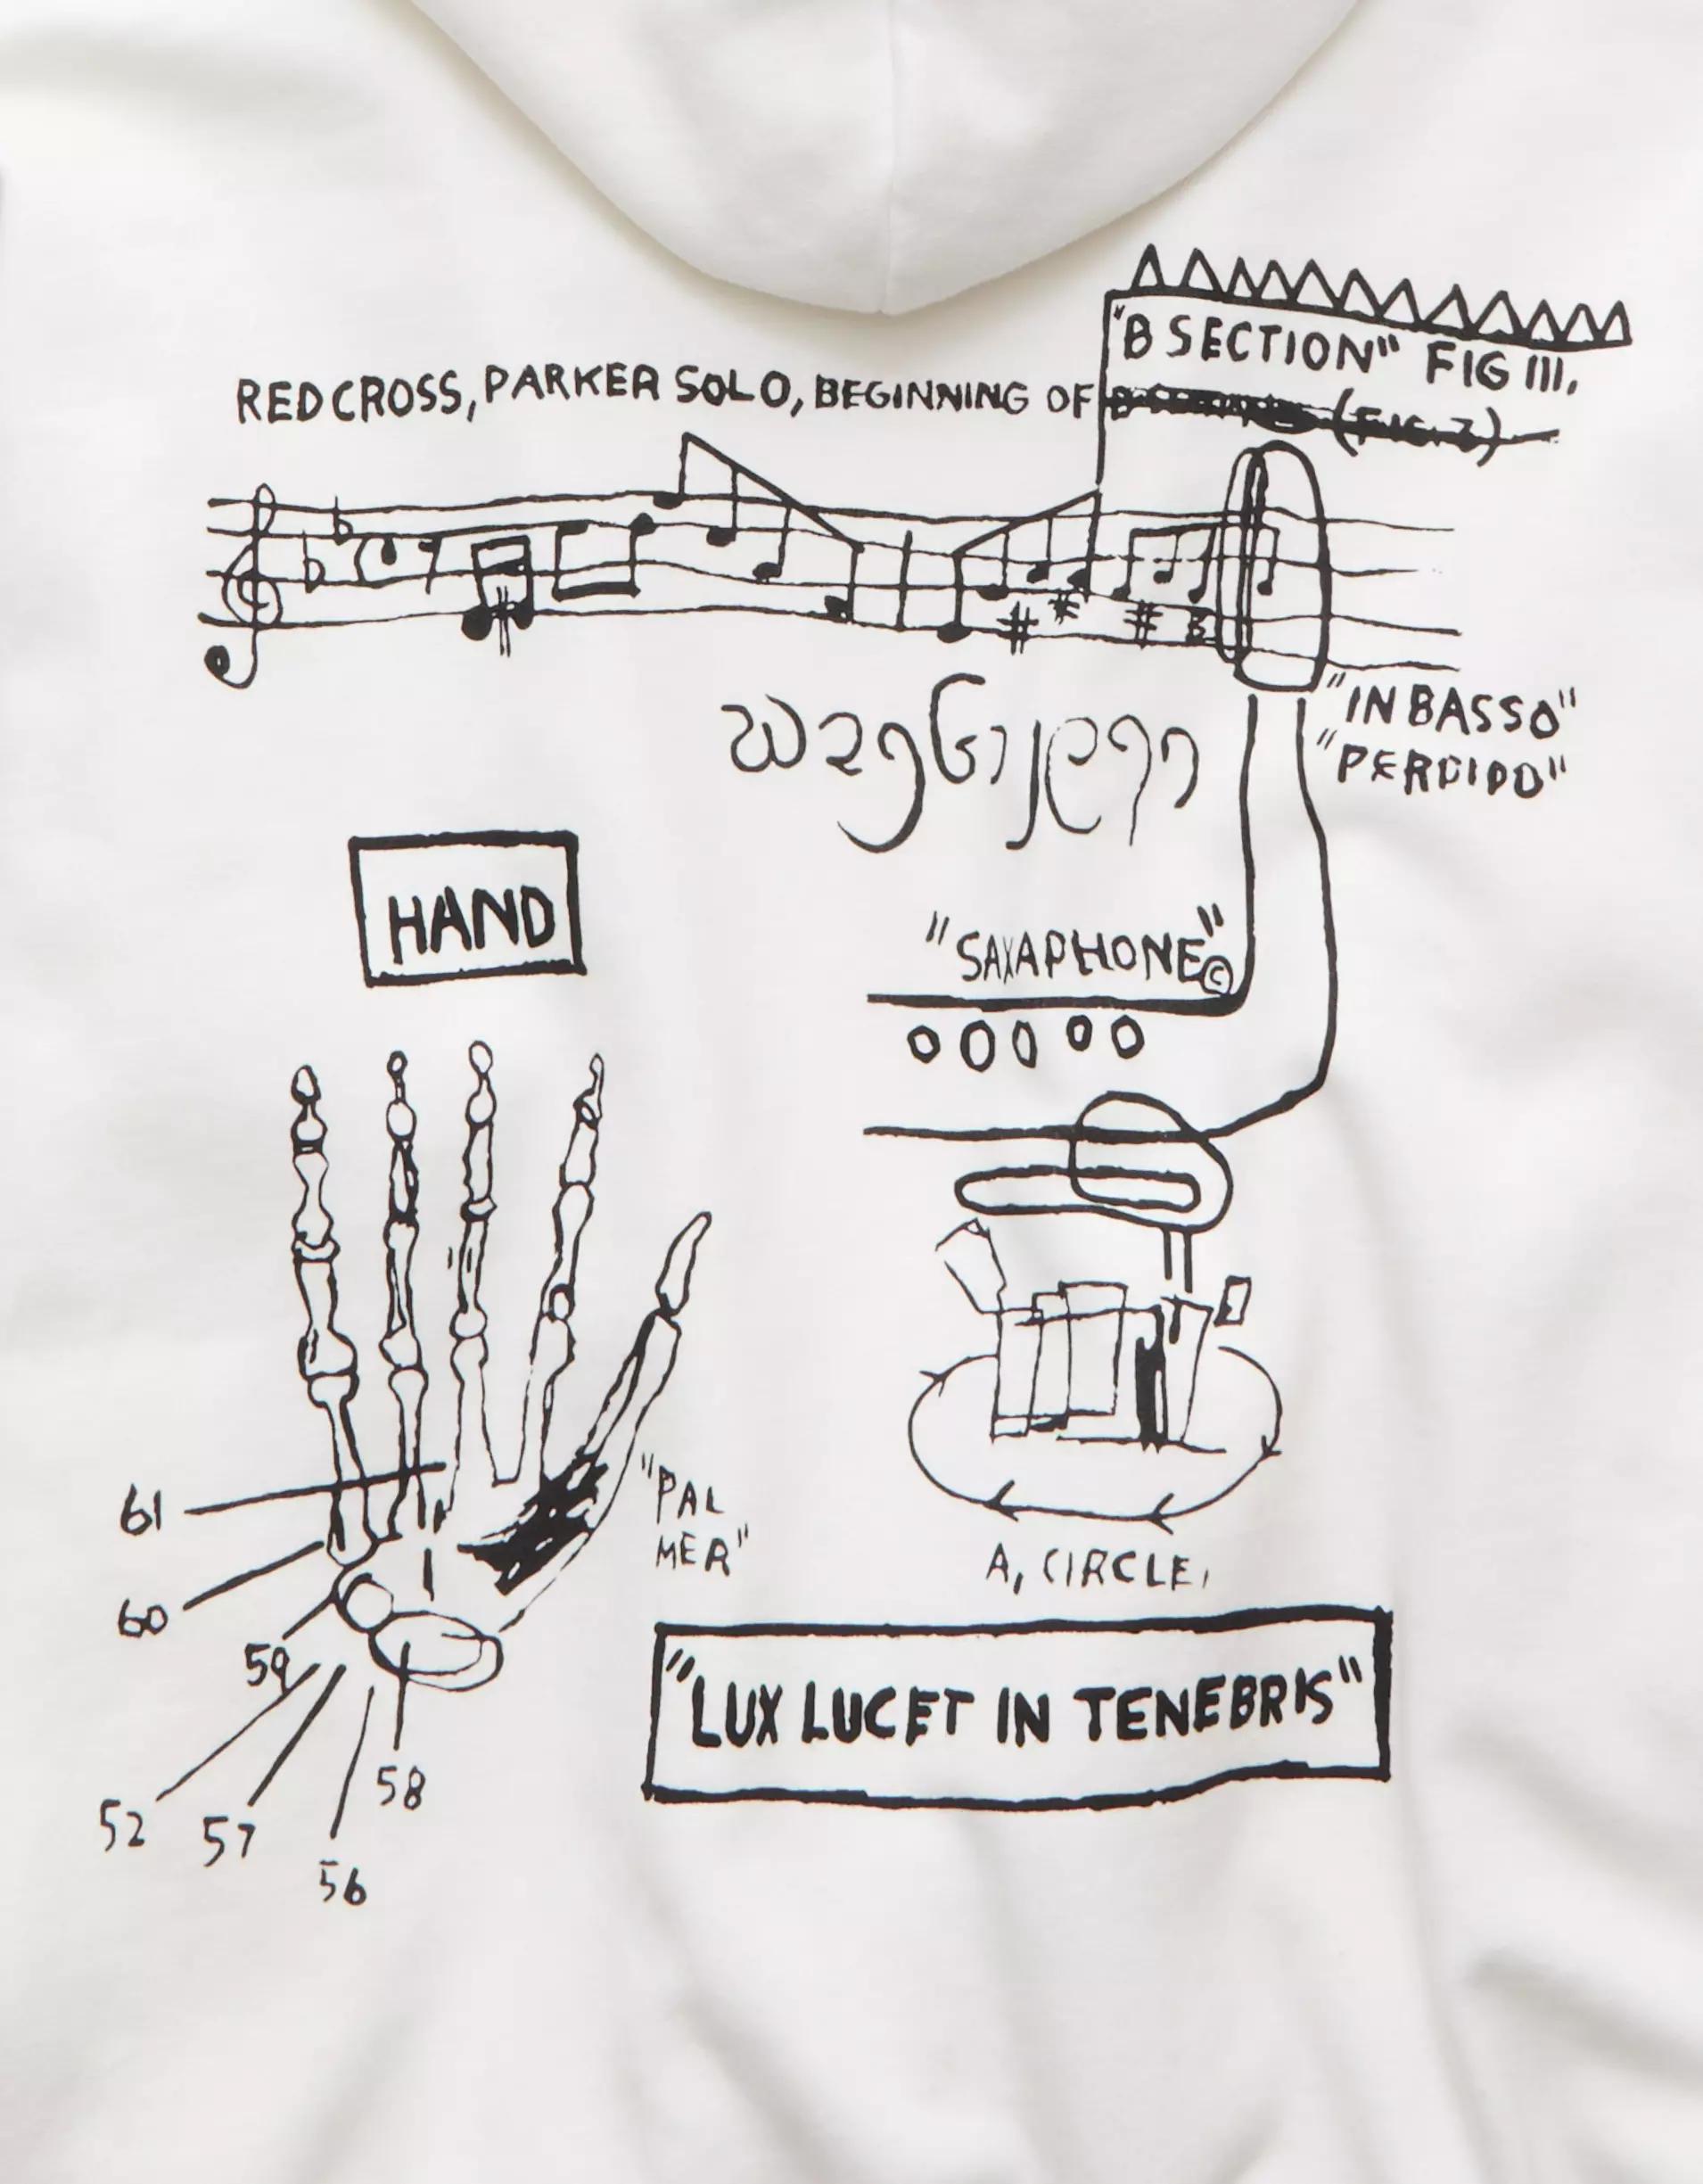 "B SECTION" FIG III,
REDCROSS, PARKER SOLO, BEGINNING OF
"IN BASSO"
"PERDIDO"
HAND
"SAXAPHONE"©
"PAL
MER"
61
60
59
52
57
58
56
A, CIRCLE,
"LUX LUCET IN TENEBRIS"